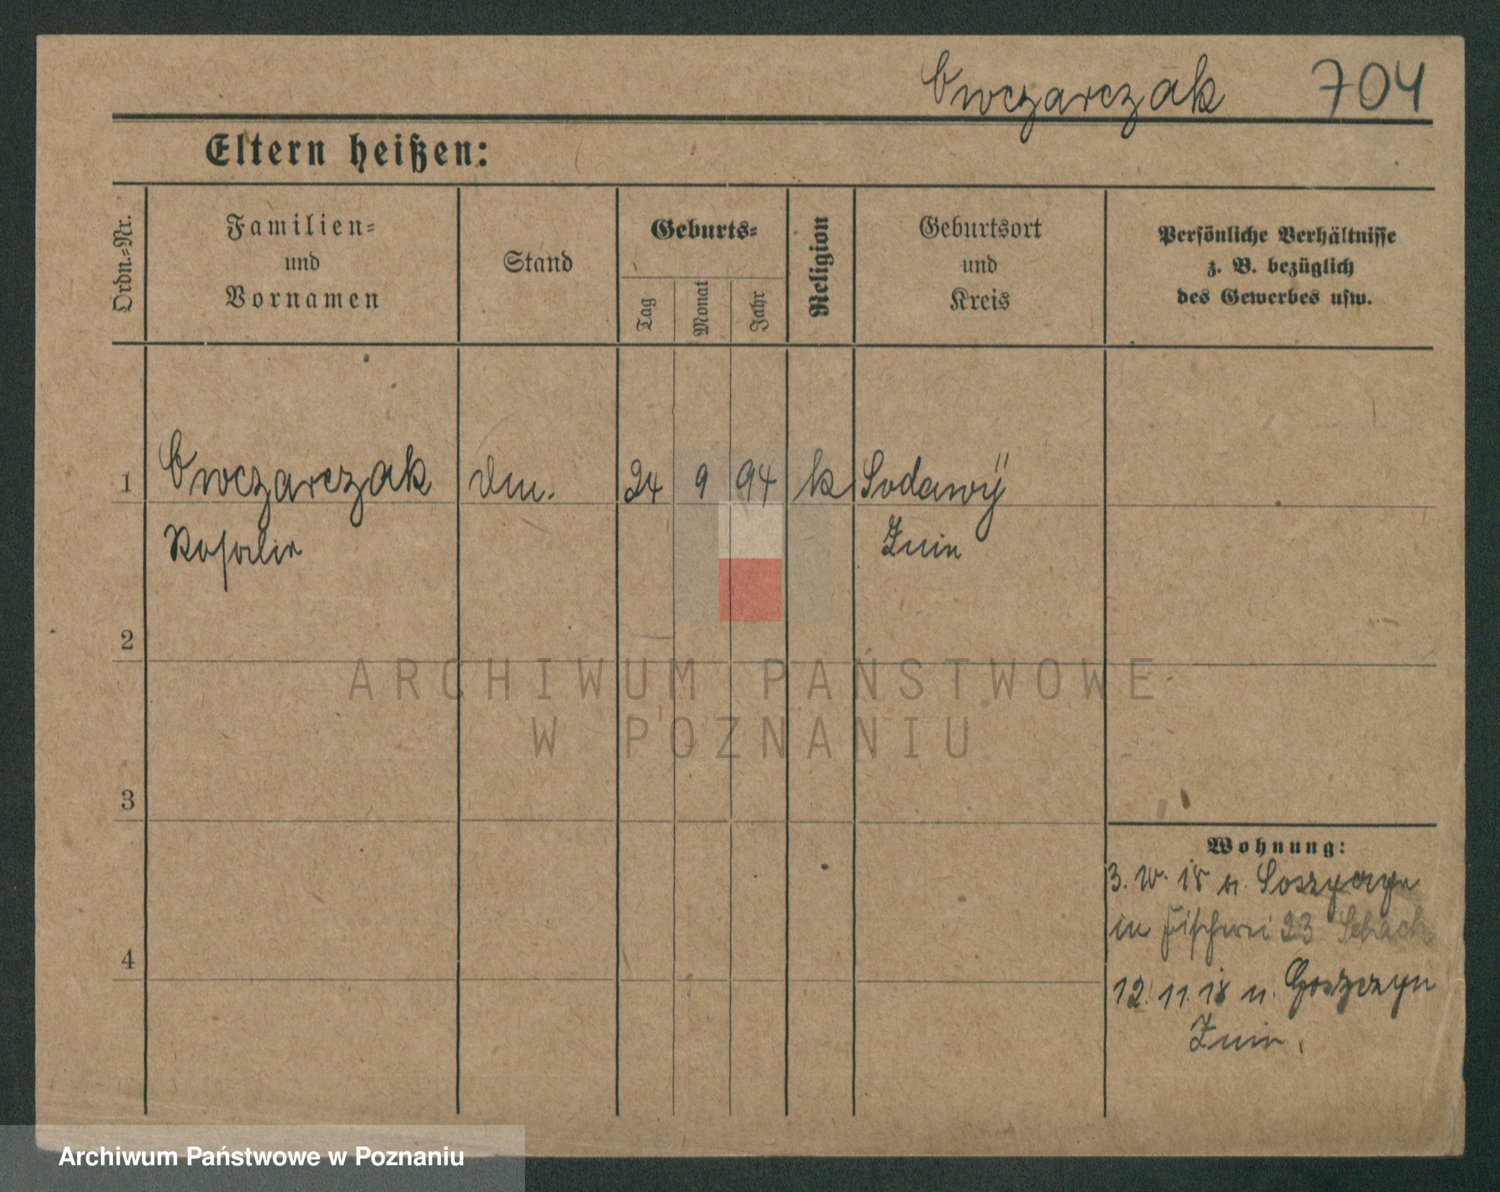 Owczarczak 704
Eltern heißen:
Ordn.-Nr.
Familien-
und
Vornamen
Stand
Geburts-
Tag
Monat
Jahr
Religion
Geburtsort
und
Kreis
Persönliche Verhältnisse
z. B. bezüglich
des Gewerbes usw.
1 Owczarczak 24 9 94 k
Rosalie Znin
2
3
4
Wohnung:
in Fischerei 23
12. 11. 18 n. Goszczyn
Znin.
ARCHIWUM PAŃSTWOWE
W POZNANIU
Archiwum Państwowe w Poznaniu